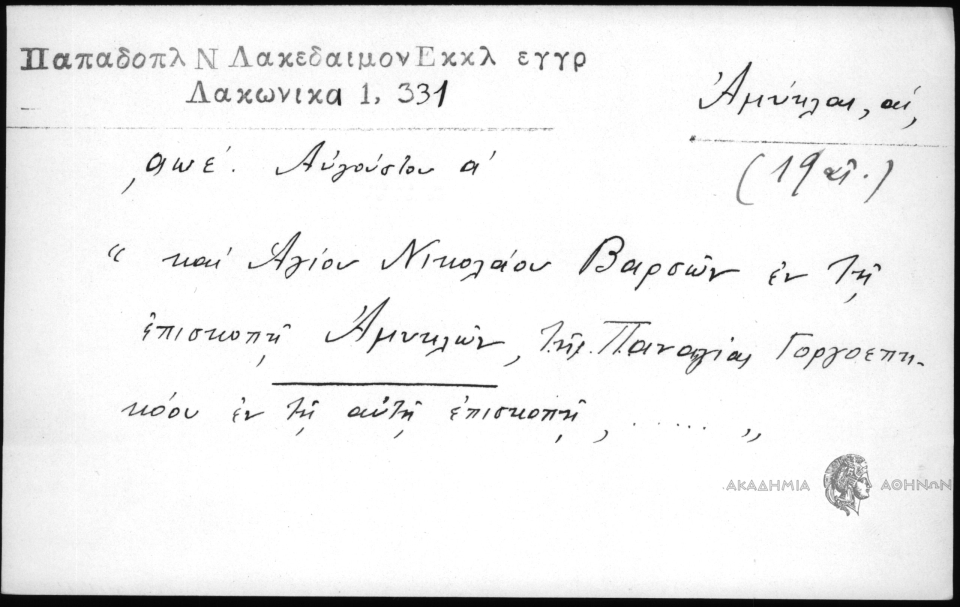 Παπαδοπλ Ν Λακεδαιμον Εκκλ εγγρ
Λακωνικα 1, 331
Ἀμύκλαι, αἱ,
(19 αἰ.)
͵αωέ. Αὐγούστου α'
“ καί Ἁγίου Νικολάου Βαρσῶν ἐν τῇ
ἐπισκοπῇ Ἀμυκλῶν, τῆς Παναγίας Γοργοεπη-
κόου ἐν τῇ αὐτῇ ἐπισκοπῇ, ...... „
ΑΚΑΔΗΜΙΑ ΑΘΗΝΩΝ